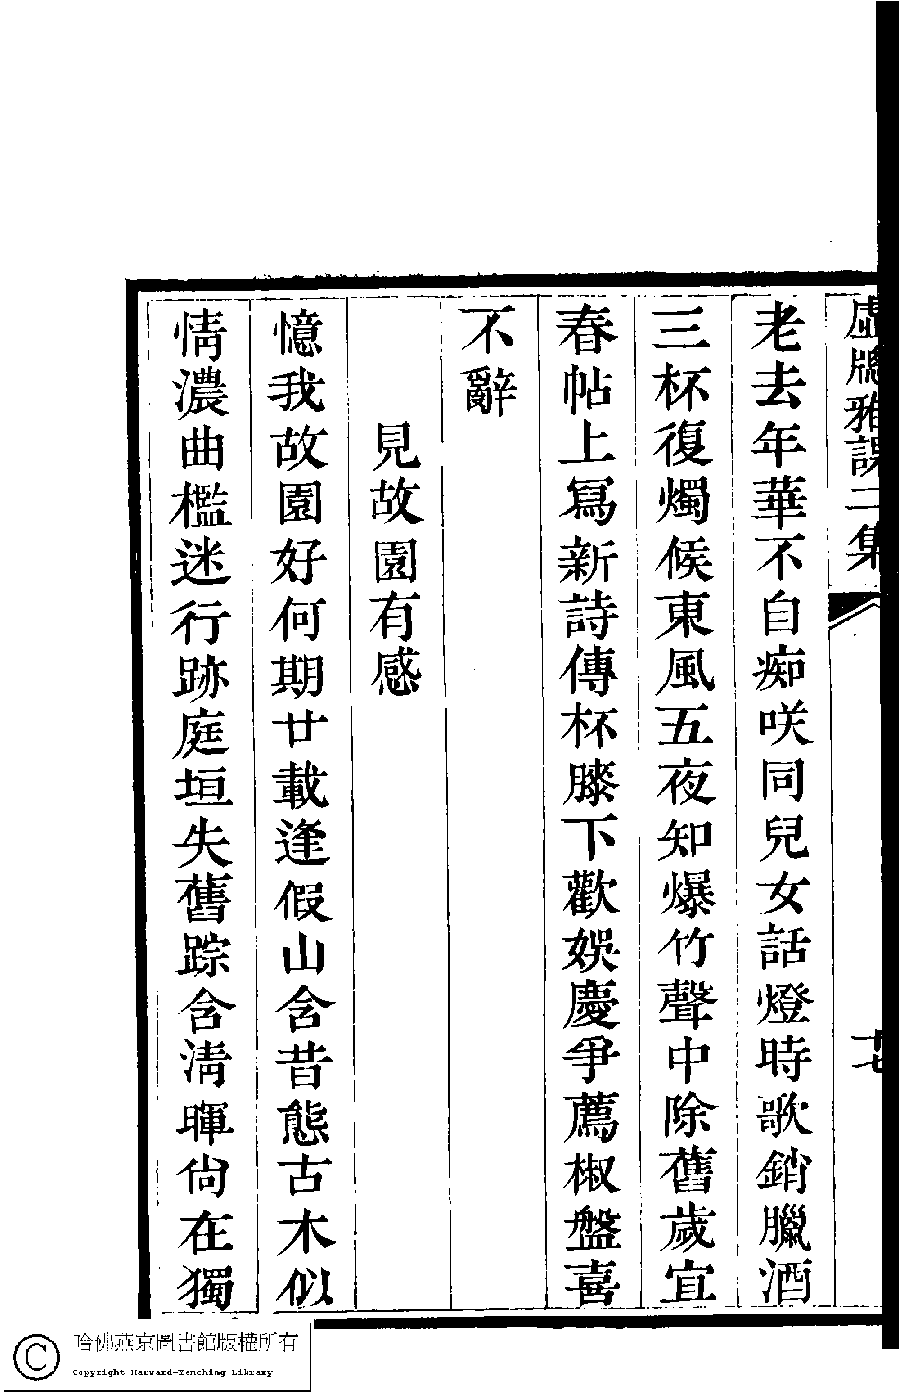 虛牕雅課二集
十七
老去年華不自痴咲同兒女話燈時歌銷臘酒
三杯復燭候東風五夜知爆竹聲中除舊歲宜
春帖上寫新詩傳杯膝下歡娛慶爭薦椒盤喜
不辭
見故園有感
憶我故園好何期廿載逢假山含昔態古木似
情濃曲檻迷行跡庭垣失舊踪含清暉尙在獨
哈佛燕京圖書館版權所有
Copyright Harvard-Yenching Library